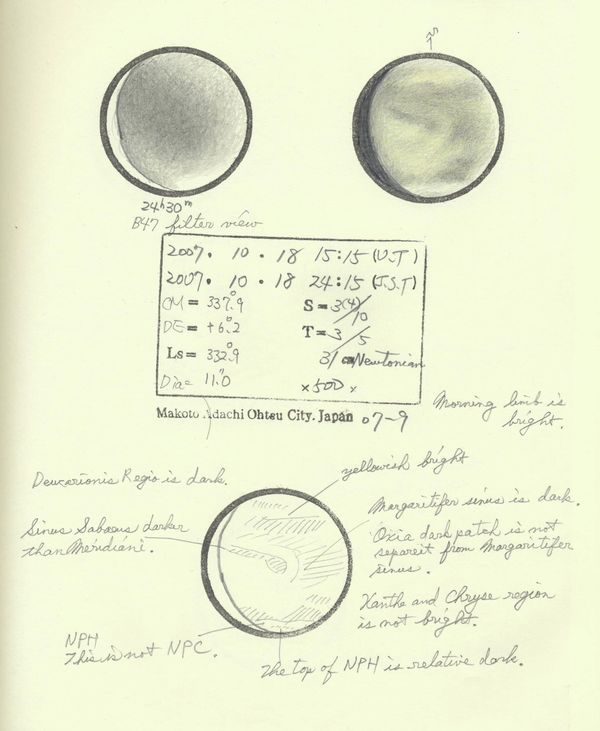 24ʰ30ᵐ
B47 filter view
2007. 10. 18 15:15 (U.T)
2007. 10. 18 24:15 (J.S.T)
CM = 337.°9 S = 3(4)/10
DE = +6.°2 T = 3/5
Ls = 332.°9 31 cm Newtonian
Dia = 11."0 ×500 ×
Makoto Adachi Ohtsu City. Japan 07-9
Morning limb is
bright.
yellowish bright
Deucarionis Regio is dark.
Margaritifer sinus is dark.
Sinus Sabaeus darker
than Meridiani.
Oxia dark patch is not
separeit from Margaritifer
sinus.
Xanthe and Chryse region
is not bright.
NPH
This is not NPC.
The top of NPH is relative dark.